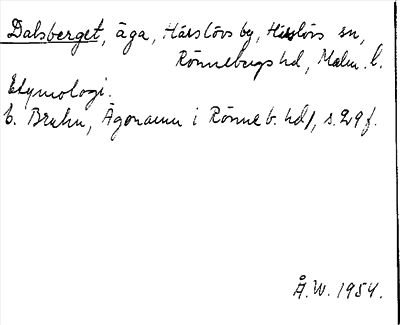 Dalsberget, äga, Härslövs by, Härslövs sn,
Rönnebergs hd, Malm. l.
Etymologi.
b. Bruhn, Ägonamn i Rönneb. hd/, s. 29 f.
Å. W. 1954.